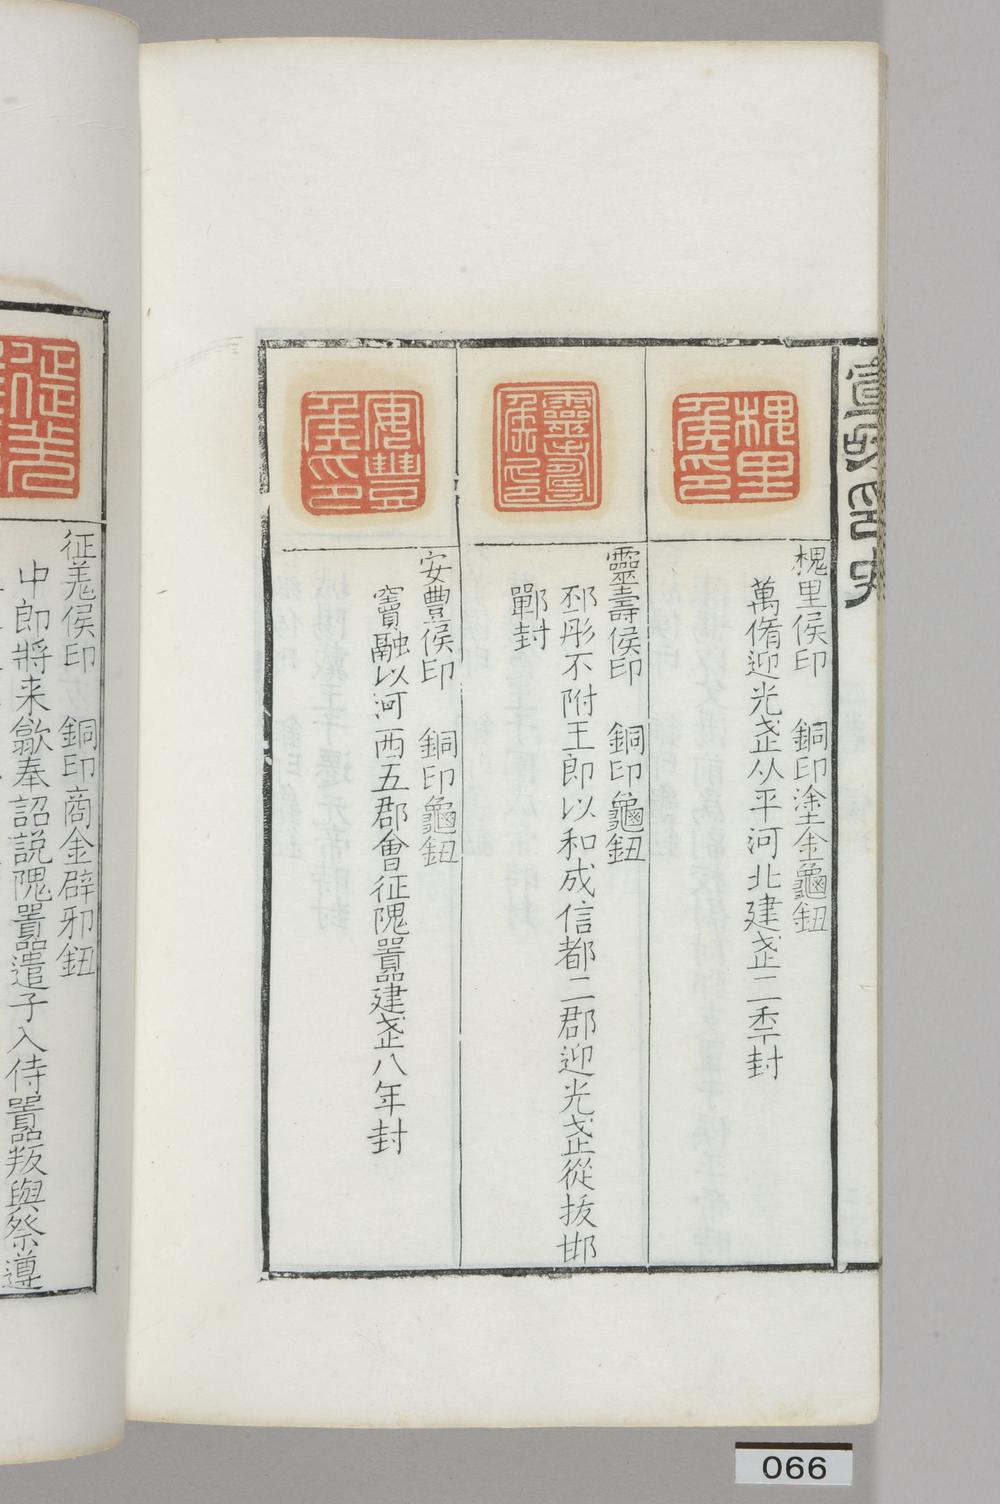 槐里
侯印
槐里侯印　銅印塗金龜鈕
萬脩迎光武从平河北建武二秊封
靈壽
侯印
靈壽侯印　銅印龜鈕
邳彤不附王郎以和成信都二郡迎光武從拔邯
鄲封
安豐
侯印
安豐侯印　銅印龜鈕
竇融以河西五郡會征隗囂建武八年封
征羌
征羌侯印　銅印商金辟邪鈕
中郎將来歙奉詔説隗囂遣子入侍囂叛與祭遵
066